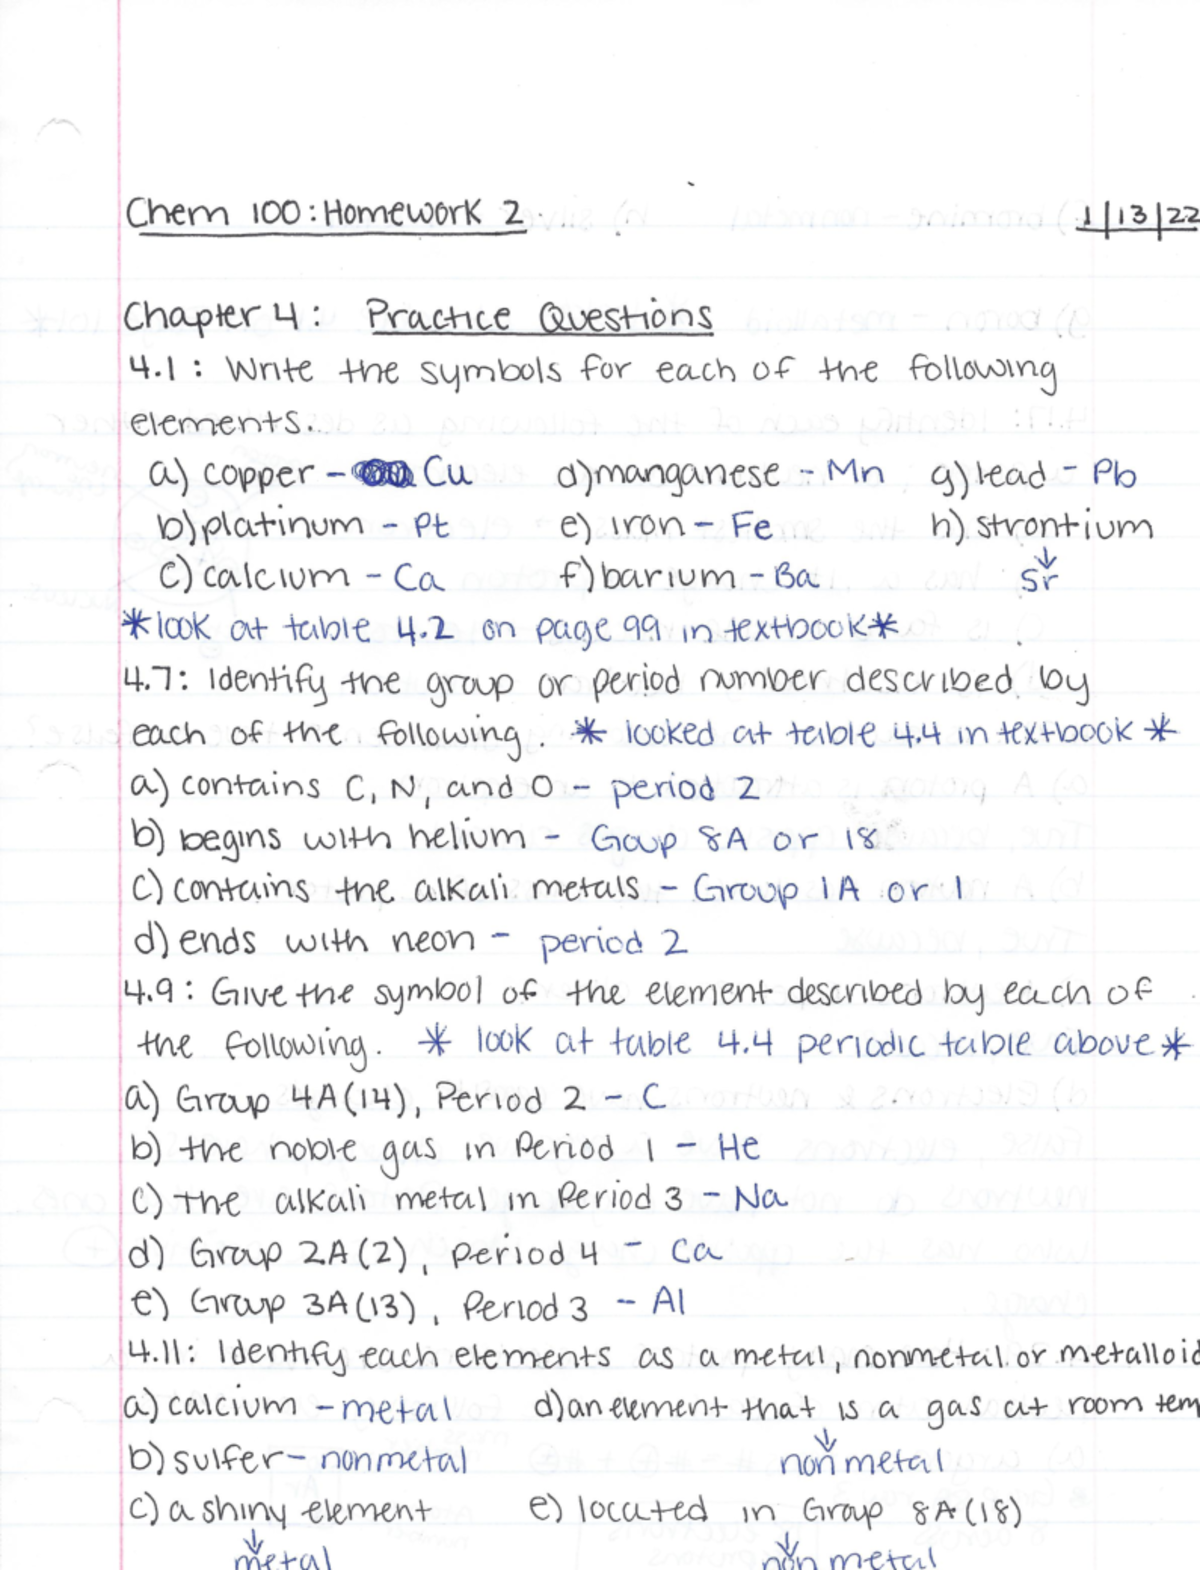 Chem 100: Homework 2 1|13|22
Chapter 4: Practice Questions
4.1: Write the symbols for each of the following
elements.
a) copper - Cu d) manganese - Mn g) lead - Pb
b) platinum - Pt e) iron - Fe h) strontium
c) calcium - Ca f) barium - Ba Sr
*look at table 4.2 on page 99 in textbook*
4.7: Identify the group or period number described by
each of the following. * looked at table 4.4 in textbook *
a) contains C, N, and O - period 2
b) begins with helium - Goup 8A or 18
c) contains the alkali metals - Group 1A or 1
d) ends with neon - period 2
4.9: Give the symbol of the element described by each of
the following. * look at table 4.4 periodic table above *
a) Group 4A(14), Period 2 - C
b) the noble gas in Period 1 - He
c) the alkali metal in Period 3 - Na
d) Group 2A(2), Period 4 - Ca
e) Group 3A(13), Period 3 - Al
4.11: Identify each elements as a metal, nonmetal or metalloid
a) calcium - metal d) an element that is a gas at room tem
b) sulfer - nonmetal non metal
c) a shiny element e) located in Group 8A(18)
metal non metal